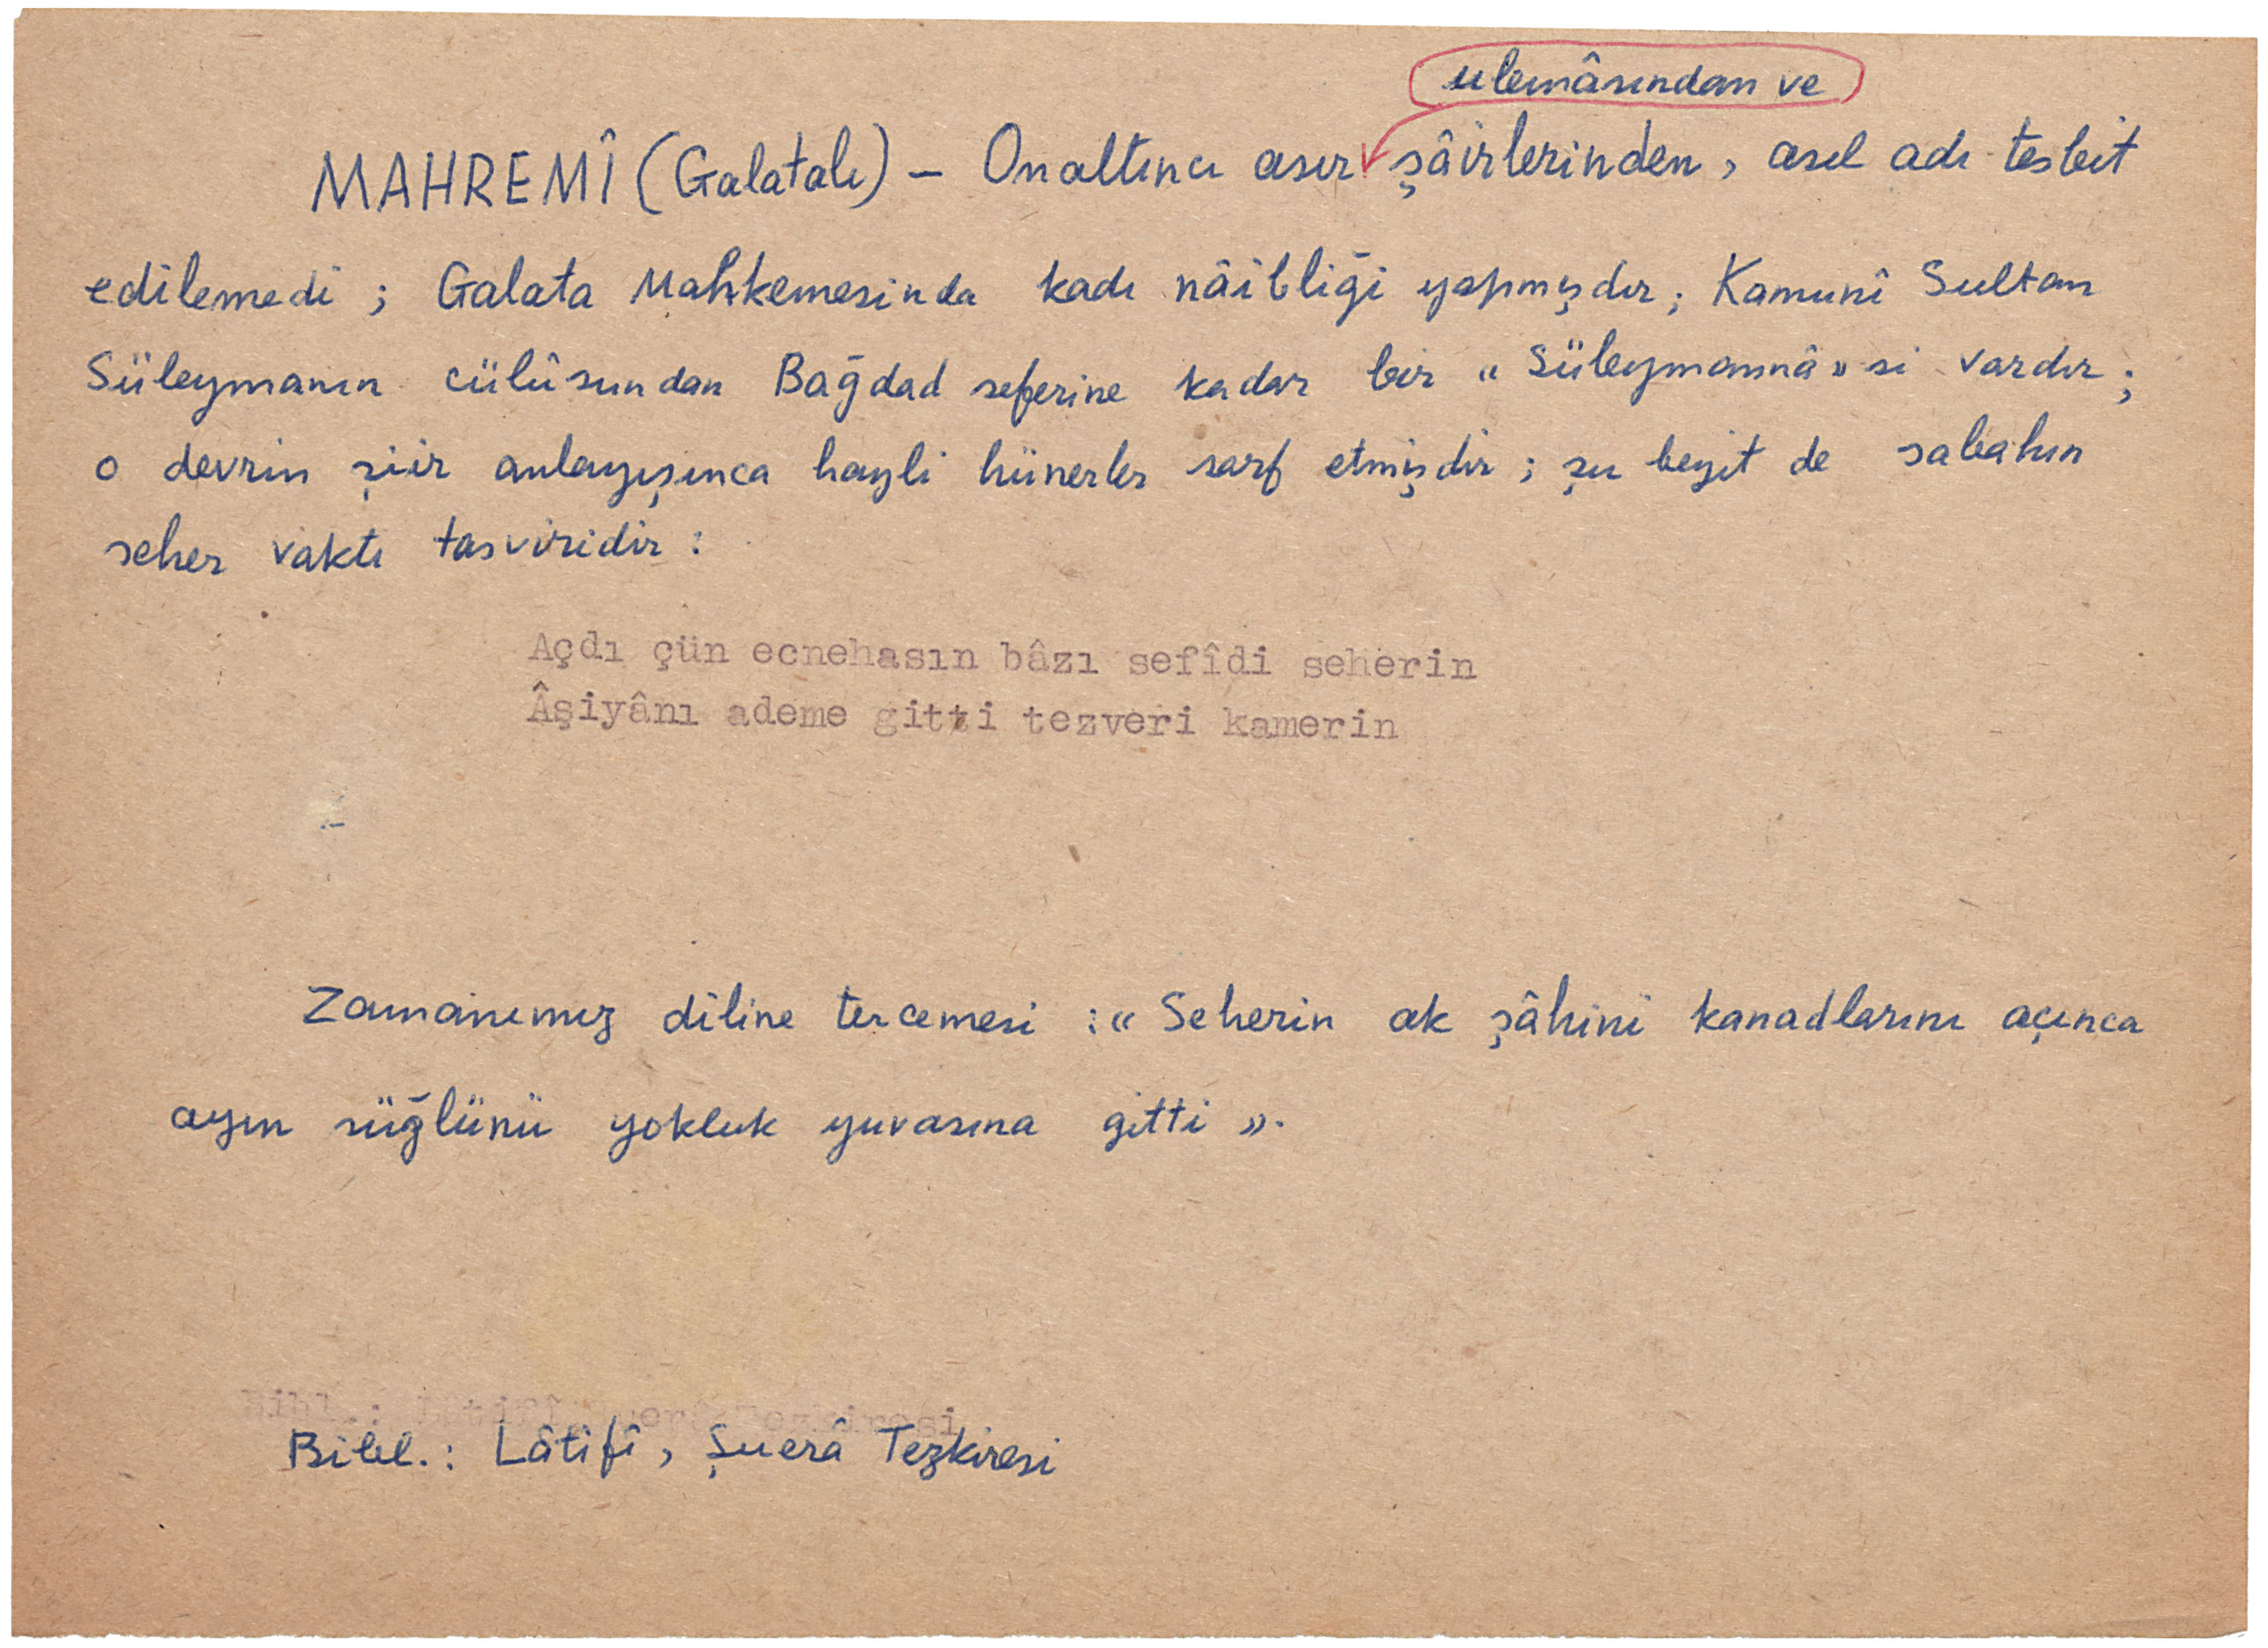 ulemâsından ve
MAHREMÎ (Galatalı) – Onaltıncı asır şâirlerinden, asıl adı tesbit
edilemedi ; Galata Mahkemesinda kadı nâibliği yapmışdır ; Kanunî Sultan
Süleymanın cülûsundan Bağdad seferine kadar bir « Süleymannâ » si vardır ;
o devrin şiir anlayışınca hayli hünerler sarf etmişdir ; şu beyit de sabahın
seher vaktı tasviridir :
Açdı çün ecnehasın bâzı sefîdi seherin
Âşiyânı ademe gitti tezveri kamerin
Zamanımız diline tercemesi : « Seherin ak şâhini kanadlarını açınca
ayın süğlünü yokluk yuvasına gitti ».
Bibl.: Lâtifî, Şuerâ Tezkiresi
Bibl.: Lâtifî, Şuerâ Tezkiresi